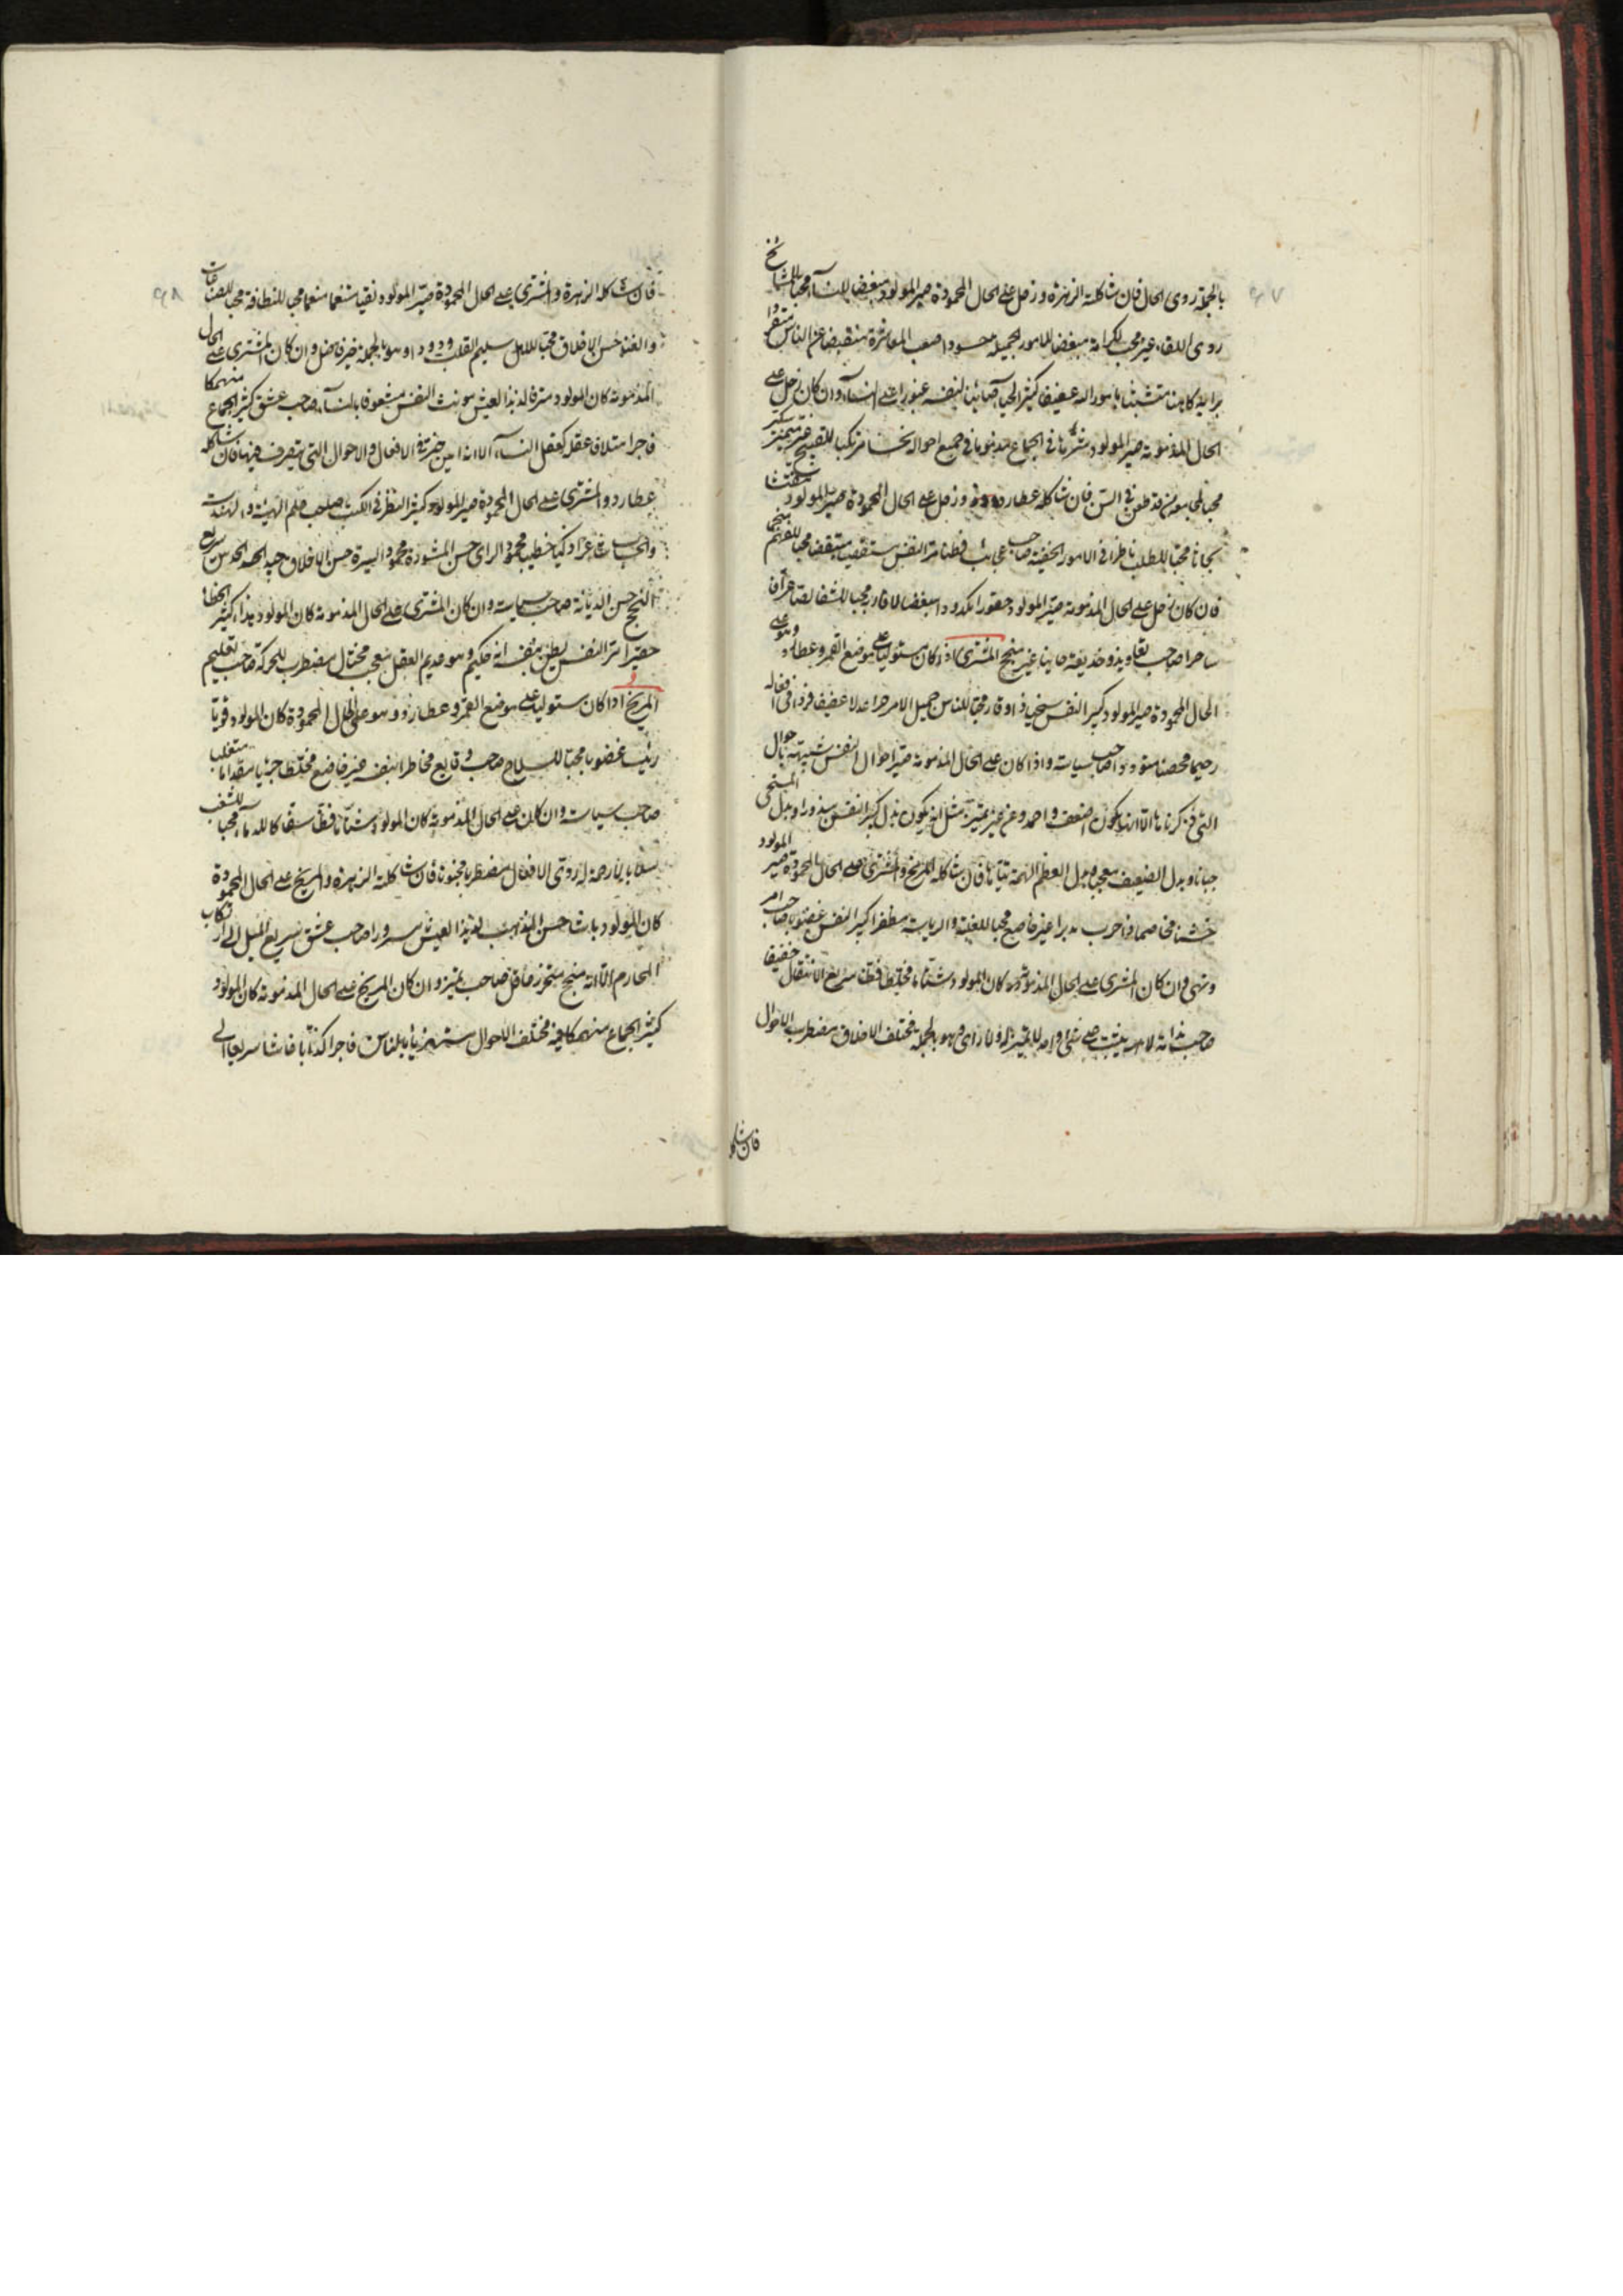 بالجملة ردى الحال فان شاكلته الزهرة وزحل على الحال المحمودة صير المولود مبغضا للنسآء محبا للمشايخ
ردى اللقاء غير محب للكرامة مبغضا للامور الجميلة حسودا صعب المعاشرة منقبضا عن الناس منفردا
برايه كاهنا متشبثا بامور اله عفيفا كثير الحيآء صائنا لنفسه غيورا على النسآء وان كان زحل على
الحال المذمومة صير المولود شرها فى الجماع مذموما فى جميع احواله نجسا مرتكبا للقبيح غير متميز
محبا لمجامعة من قد طعن فى السن فان شاكله عطارد وزحل على الحال المحمودة صير المولود مفتشا
بحاثا محبا للطلب ناظرا فى الامور الخفية صاحب عجائب فطنا مر النفس مستقصيا متيقضا محبا للفهم منجحا
فان كان زحل على الحال المذمومة صير المولود حقودا مكدودا مبغضا لاقاربه محبا للشقا لصا عرافا
ساحرا صاحب تعاويذ وخديعة خائنا غير منجح المشترى اذا كان مستوليا على موضع القمر وعطارد وهو على
الحال المحمودة صير المولود كبير النفس سخيا ذا وقار محبا للناس جميل الامر حرا عدلا عفيفا فردا فى افعاله
رحيما محصنا متوددا صاحب سياسة واذا كان على الحال المذمومة صير احوال النفس شبيهة باحوال
التى ذكرناها الا انها تكون اضعف واخمد وغير متميزة مثل انه يكون بدل كبر النفس مبذرا وبدل المستحى
جبانا وبدل الضعيف معجبا وبدل العظم الهمة تياها فان شاكله المريخ والمشترى على الحال المحمودة صير المولود
خشنا مخاصما ذا حرب مدبرا غير خاضع محبا للغلبة والرياسة مظفرا كبير النفس غضوبا صاحب امر
ونهى وان كان المشترى على الحال المذمومة كان المولود شتاما مختلطا فظا سريع الانتقال خفيفا
صاحب ندامة لا يثبت على شئ واحد لا تميز له ولا راى وهو بالجملة مختلف الاخلاق مضطرب الاحوال
فان شاكله
فان شاكله الزهرة والمشترى على الحال المحمودة صير المولود نقيا متنعما منعما محبا للنظافة محبا للصناعات
والغنا حسن الاخلاق محبا للاهل سليم القلب ودودا وهو بالجملة خير فاضل وان كان المشترى على الحال
المذمومة كان المولود مترفا لذيذ العيش مونث النفس مشعوفا بالنسآء صاحب عشق كثير الجماع منهمكا
فاجرا متلافا عقله كعقل النسآء الا انه امين خير فى الافعال والاحوال التى يتصرف فيها فان شاكله
عطارد والمشترى على الحال المحمودة صير المولود كثير النظر فى الكتب صاحب علم الهيئة والهندسة
والحساب شاعرا ذكيا خطيبا محمود الراى حسن المشورة محمود السيرة حسن الاخلاق جيد الحدس سريع
النجح حسن الديانة صاحب سياسات وان كان المشترى على الحال المذمومة كان المولود هذاء كثير الخطا
حقيرا مر النفس يظن بنفسه انه حكيم وهو عديم العقل معجب مختال مضطرب الحركة صاحب تعليم
المريخ اذا كان مستوليا على موضع القمر وعطارد وهو على الحال المحمودة كان المولود قويا
رئيسا غضوبا محبا للسلاح صاحب وقايع مخاطرا بنفسه غير خاضع مختلطا جريا مقداما متغلبا
صاحب سياسة وان كان على الحال المذمومة كان المولود شتاما فظا سفاكا للدماء محبا للشغب
سلابا لا رحمة له ردى الافعال مضطربا مجنونا فان شاكلته الزهرة والمريخ على الحال المحمودة
كان المولود باشا حسن المذهب لذيذ العيش مسرورا صاحب عشق سريع الميل الى ارتكاب
المحارم الا انه منجح متحرز عاقل صاحب تميز وان كان المريخ على الحال المذمومة كان المولود
كثير الجماع منهمكا فيه مختلف الاحوال مستهزيا بالناس فاجرا كذابا غاشا سريعا الى